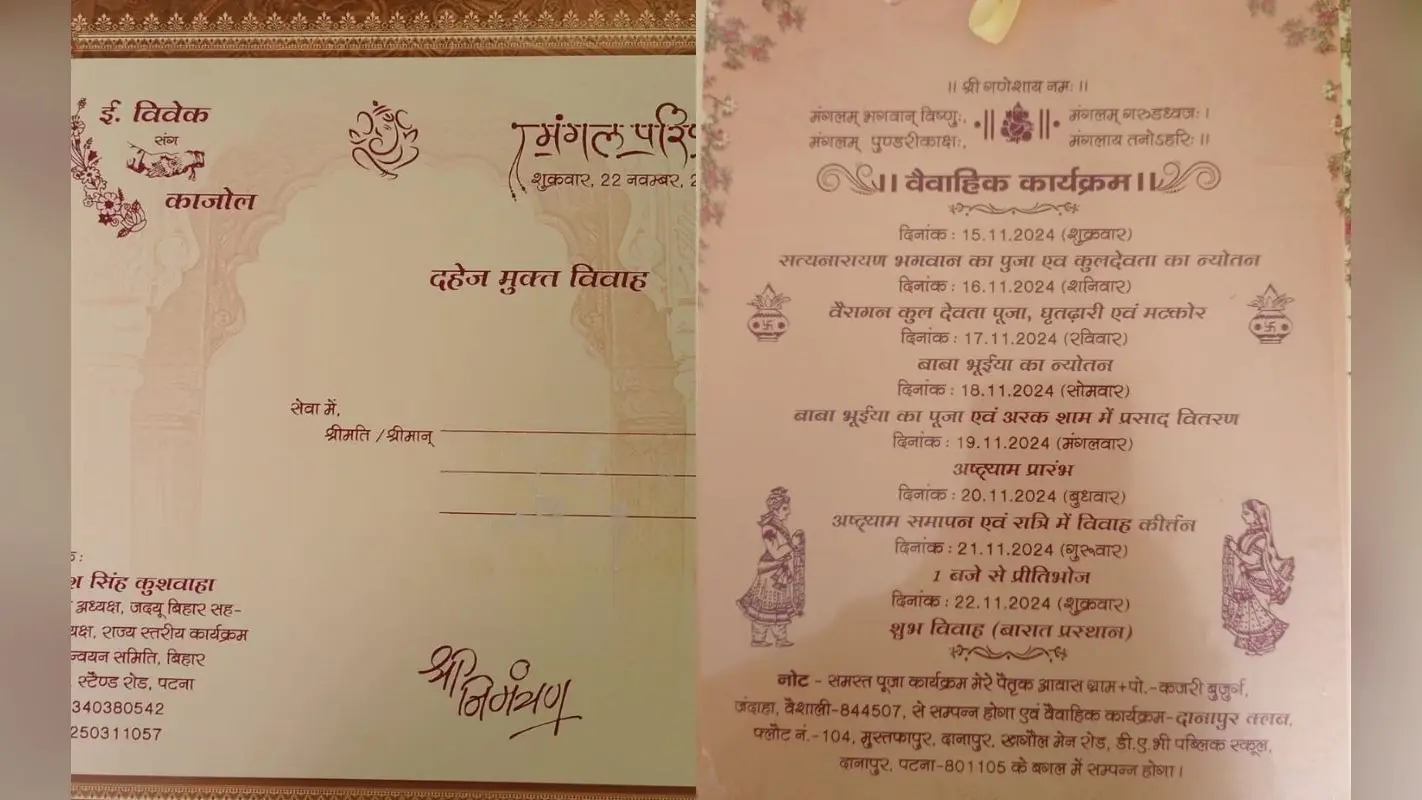 ई. विवेक
संग
काजोल
मंगल परि
शुक्रवार, 22 नवम्बर, 2
दहेज मुक्त विवाह
सेवा में,
श्रीमति / श्रीमान्
सिंह कुशवाहा
अध्यक्ष, जदयू बिहार सह-
राज्य स्तरीय कार्यक्रम
समिति, बिहार
स्टैण्ड रोड, पटना
340380542
250311057
श्री
निमंत्रण
।। श्री गणेशाय नमः ।।
मंगलम् भगवान् विष्णुः, मंगलम् गरुडध्वजः ।
मंगलम् पुण्डरीकाक्षः, मंगलाय तनोऽहरिः ।।
।। वैवाहिक कार्यक्रम ।।
दिनांक : 15.11.2024 (शुक्रवार)
सत्यनारायण भगवान का पुजा एव कुलदेवता का न्योतन
दिनांक : 16.11.2024 (शनिवार)
वैरागन कुल देवता पूजा, घृतढ़ारी एवं मटकोर
दिनांक : 17.11.2024 (रविवार)
बाबा भूईया का न्योतन
दिनांक : 18.11.2024 (सोमवार)
बाबा भूईया का पूजा एवं अरक शाम में प्रसाद वितरण
दिनांक : 19.11.2024 (मंगलवार)
अष्ट्याम प्रारंभ
दिनांक : 20.11.2024 (बुधवार)
अष्ट्याम समापन एवं रात्रि में विवाह कीर्त्तन
दिनांक : 21.11.2024 (गुरूवार)
1 बजे से प्रीतिभोज
दिनांक : 22.11.2024 (शुक्रवार)
शुभ विवाह (बारात प्रस्थान)
नोट - समस्त पूजा कार्यक्रम मेरे पैतृक आवास ग्राम+पो.-कजरी बुजुर्ग,
जंदाहा, वैशाली-844507, से सम्पन्न होगा एवं वैवाहिक कार्यक्रम-दानापुर क्लब,
प्लौट नं.-104, मुस्तफापुर, दानापुर, खगौल मेन रोड, डी.ए.भी पब्लिक स्कूल,
दानापुर, पटना-801105 के बगल में सम्पन्न होगा ।